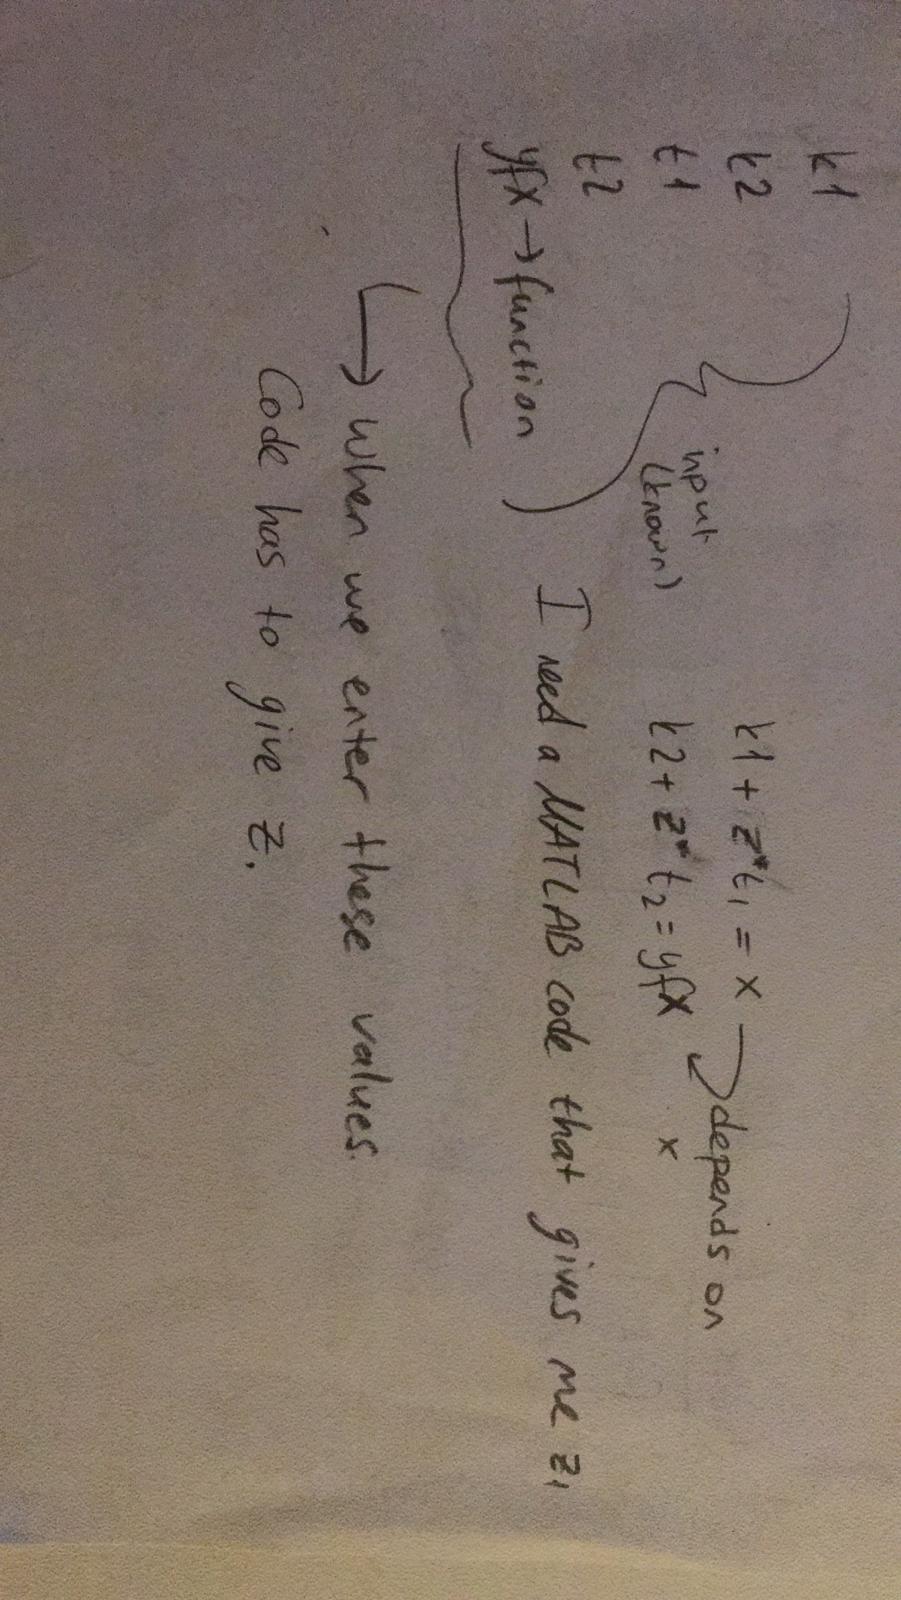 k1
k2
t1
t2
yfx → function
input
(known)
k1 + z*t₁ = x
k2 + z*t₂ = yfx
depends on
x
I need a MATLAB code that gives me z,
↳ when we enter these values.
Code has to give z.